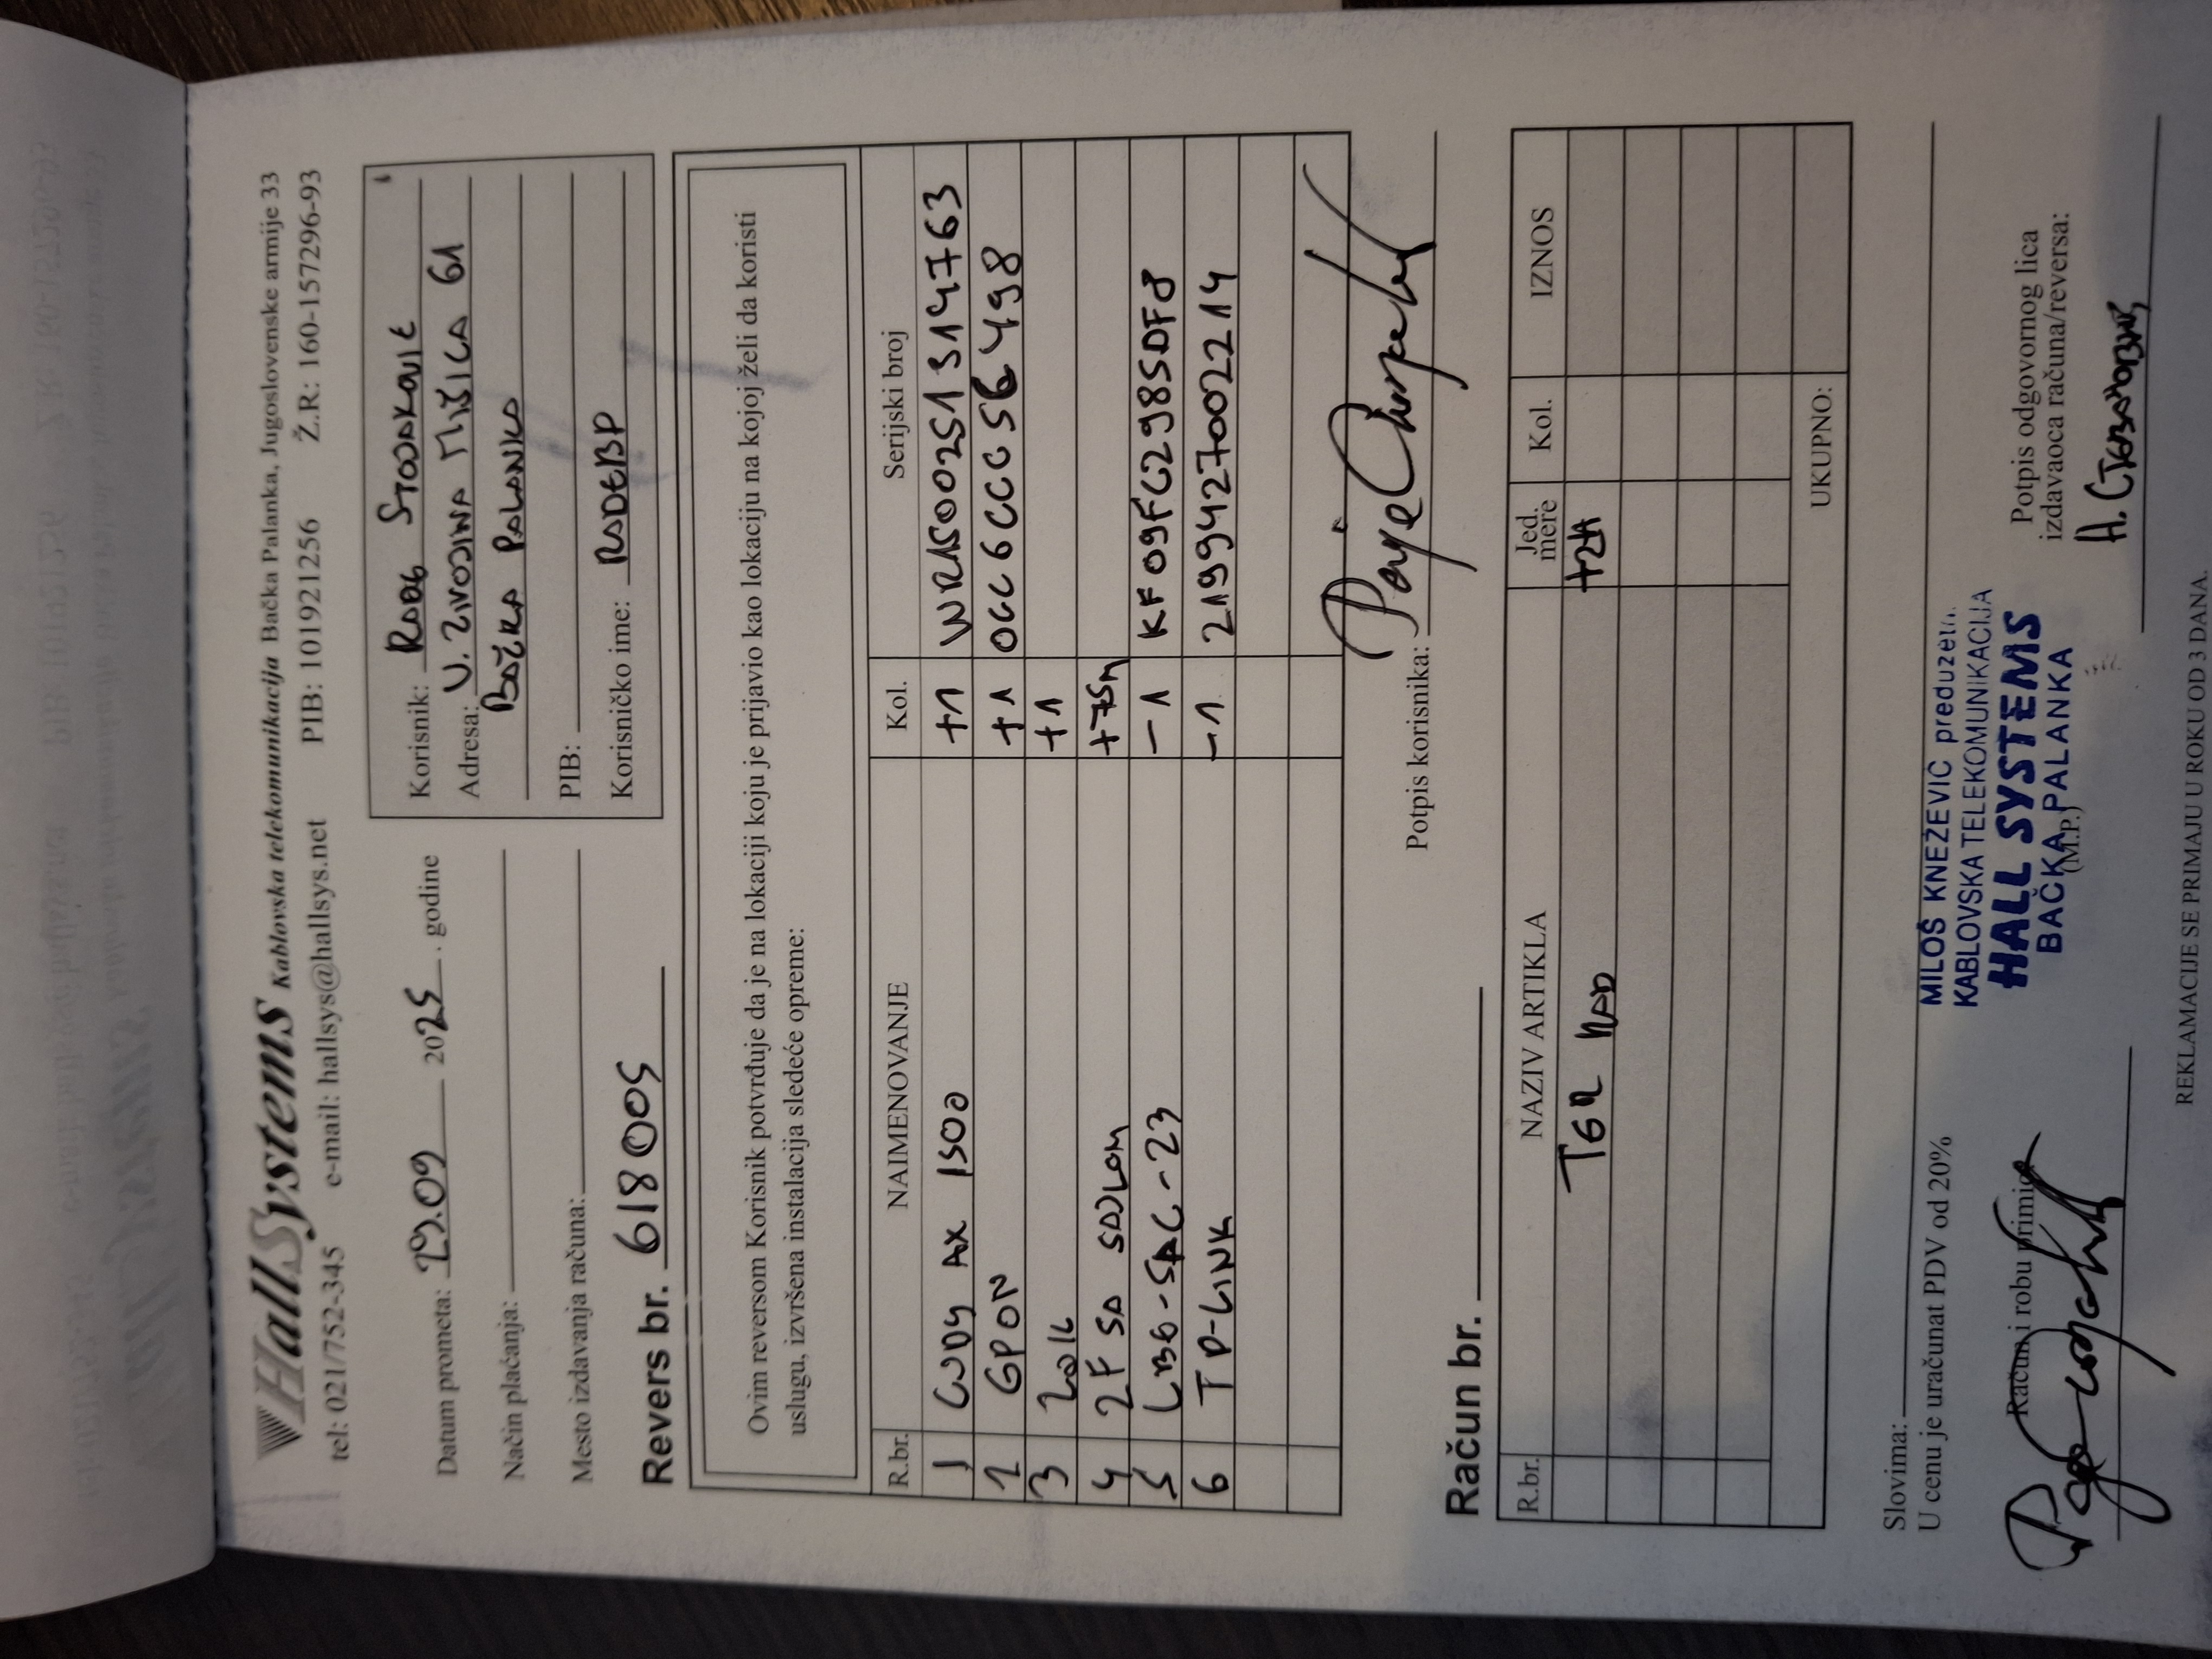 HallSystems Kablovska telekomunikacija Bačka Palanka, Jugoslovenske armije 33
tel: 021/752-345 e-mail: hallsys@hallsys.net PIB: 101921256 Ž.R.: 160-157296-93
Datum prometa: 29.09 2025. godine
Način plaćanja:
Mesto izdavanja računa:
Revers br. 618005
Korisnik: STOJAKOVIĆ
Adresa: V. ŽIVOJINA MIŠIĆA 61
BAČKA PALANKA
PIB:
Korisničko ime: RADEBP
Ovim reversom Korisnik potvrđuje da je na lokaciji koju je prijavio kao lokaciju na kojoj želi da koristi
uslugu, izvršena instalacija sledeće opreme:
R.br. NAIMENOVANJE Kol. Serijski broj
1 CUDY AX 1500 +1 WR15002513147763
2 GPON +1
3 +1
4 2F SA SAJLOM +75m
5 LBE-5AC-23 -1 KF09FC2985DF8
6 TP-LINK -1 2199427002214
Potpis korisnika:
Račun br.
R.br. NAZIV ARTIKLA Jed. mere Kol. IZNOS
TER RAD
UKUPNO:
Slovima:
U cenu je uračunat PDV od 20%
MILOŠ KNEŽEVIĆ
KABLOVSKA TELEKOMUNIKACIJA
HALL SYSTEMS
BAČKA PALANKA
(M.P.)
Račun i robu primio:
Potpis odgovornog lica
izdavaoca računa/reversa:
REKLAMACIJE SE PRIMAJU U ROKU OD 3 DANA.